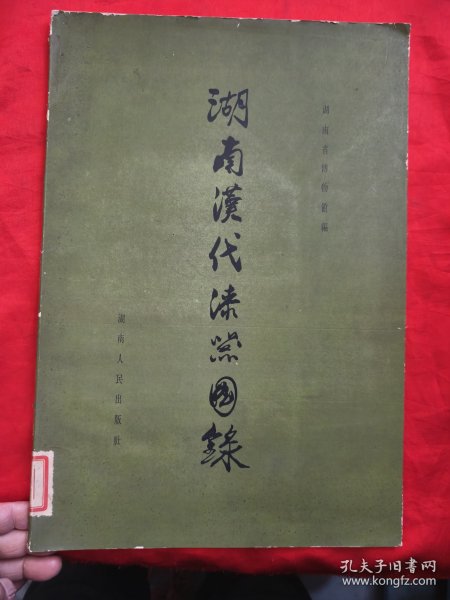 湖南省博物館編
湖南漢代漆器圖錄
湖南人民出版社
孔夫子旧书网
www.kongfz.com